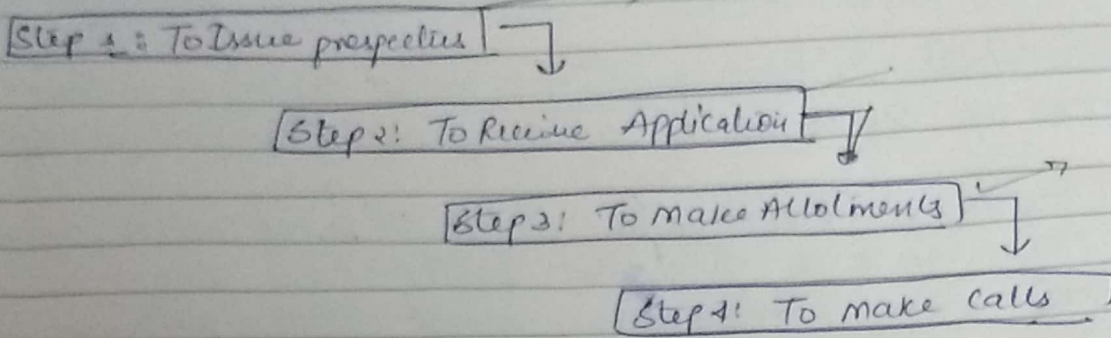 Step 1: To Issue prospectus
Step 2: To Receive Application
Step 3: To make Allotments
Step 4: To make calls